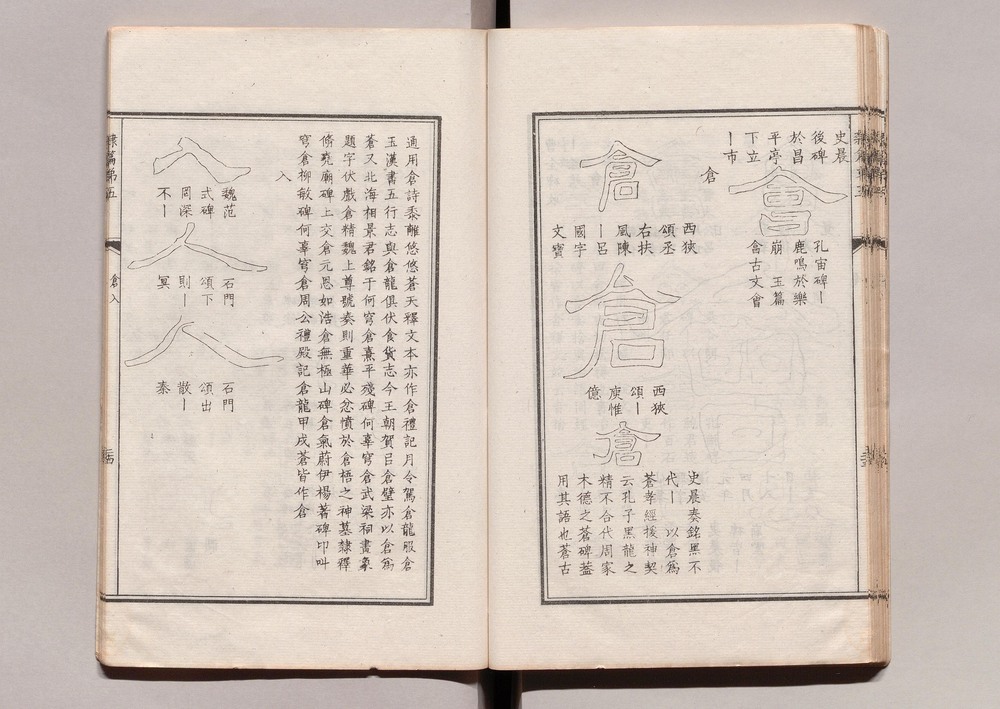 史晨
後碑
於昌
平亭
下立
丨市
會
孔宙碑丨
鹿鳴於樂
崩　玉篇
㑹古文會
倉
倉
西狹
頌丞
右扶
風陳
丨呂
國字
文寶
倉
西狹
頌丨
庾惟
億
倉
史晨奏銘黑不
代丨　以倉為
蒼孝經援神契
云孔子黑龍之
精不合代周家
木德之蒼碑蓋
用其語也蒼古
通用倉詩黍離悠悠蒼天釋文本亦作倉禮記月令駕倉龍服倉
玉漢書五行志與倉龍俱伏食貨志今王朝賀呂倉璧亦以倉為
蒼又北海相景君銘于何穹倉熹平殘碑何辜穹倉武梁祠畫象
題字伏戲倉精魏上尊號奏則重華必忿憤於倉梧之神墓隸釋
脩堯廟碑上交倉元恩如浩倉無極山碑倉氣蔚伊楊著碑叩叫
穹倉柳敏碑何辜穹倉周公禮殿記倉龍甲戌蒼皆作倉
入
入
魏范
式碑
罔深
不丨
入
石門
頌下
則丨
冥
入
石門
頌出
散丨
秦
隸篇第五
倉入